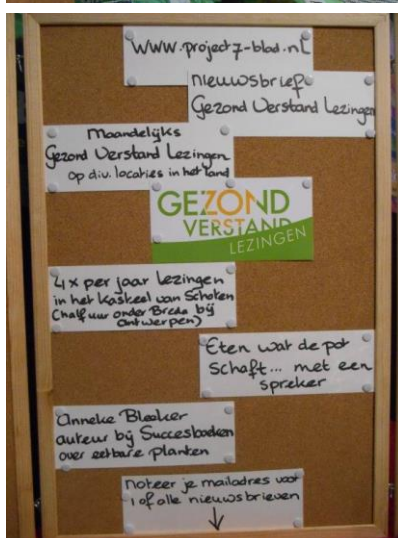 www.project7-blad.nl
nieuwsbrief
Gezond Verstand Lezingen
Maandelijks
Gezond Verstand Lezingen
op div. locaties in het land
GEZOND
VERSTAND
LEZINGEN
4x per jaar lezingen
in het Kasteel van Schoten
(half uur onder Breda bij
Antwerpen)
Eten wat de pot
schaft... met een
spreker
Anneke Bleeker
auteur bij Succesboeken
over eetbare planten
noteer je mailadres voor
1 of alle nieuwsbrieven